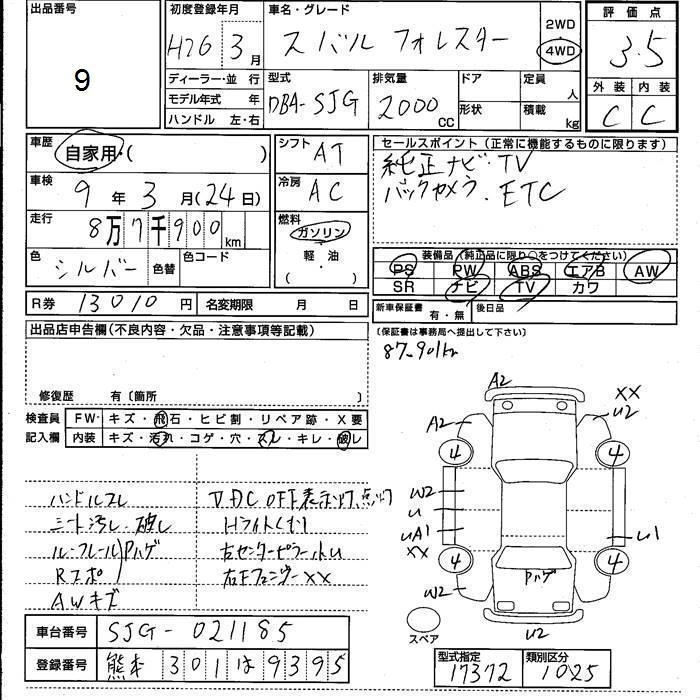 出品番号 初度登録年月 車名・グレード 評価点
9 H26 3月 スバル フォレスター 2WD 4WD 3.5
ディーラー・並行 型式 排気量 ドア 定員 人 外装 内装
モデル年式 年 DBA-SJG 2000cc 形状 積載 kg C C
ハンドル 左・右
車歴 自家用・( ) シフト AT セールスポイント(正常に機能するものに限ります)
車検 9年3月(24日) 冷房 AC 純正ナビ・TV
バックカメラ・ETC
走行 8万7千900km 燃料 ガソリン
軽・油
( )
色 シルバー 色替 色コード
装備品(純正品に限り○をつけてください)
PS PW ABS エアB AW
SR ナビ TV カワ
R券 13010円 名変期限 月 日 新車保証書 有・無 後日品
(保証書は事務局へ提出して下さい)
出品店申告欄(不良内容・欠品・注意事項等記載)
87.901km
修復歴 有〔箇所 〕
検査員 FW- キズ・飛石・ヒビ割・リペア跡・X要
記入欄 内装 キズ・汚れ・コゲ・穴・スレ・キレ・破レ
ハンドルスレ
シート汚レ・破レ
ル-フレール Pハゲ
Rスポ
AWキズ
Hライトくもり
右Fフェンダー××
A2
A2
U2
××
4 4
W2
U
UA1
××
U1
4 4
Pハゲ
W2
U2
スペア
車台番号 SJG-021185
登録番号 熊本 301 は 9395
型式指定 17372 類別区分 1025